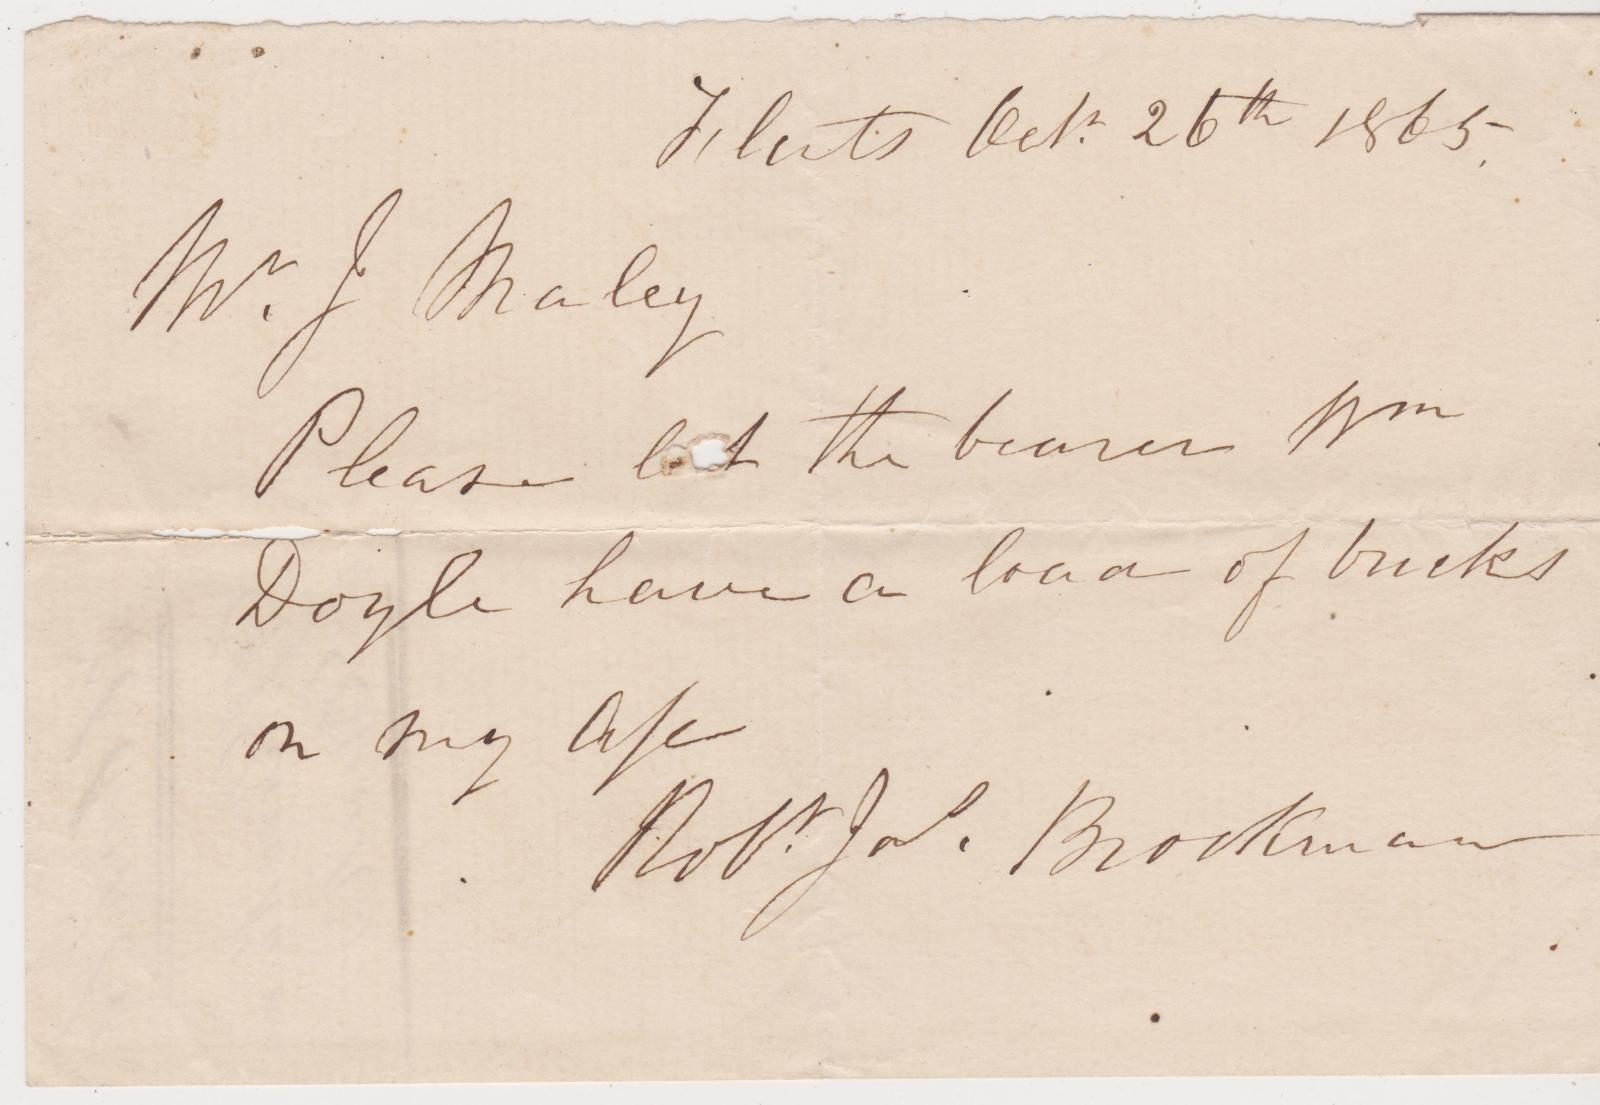 Filerts Oct. 26th 1865.
Mr. J Maley
Please let the bearer Wm
Doyle have a load of bricks
on my a/c
Robt. Jas. Brockman